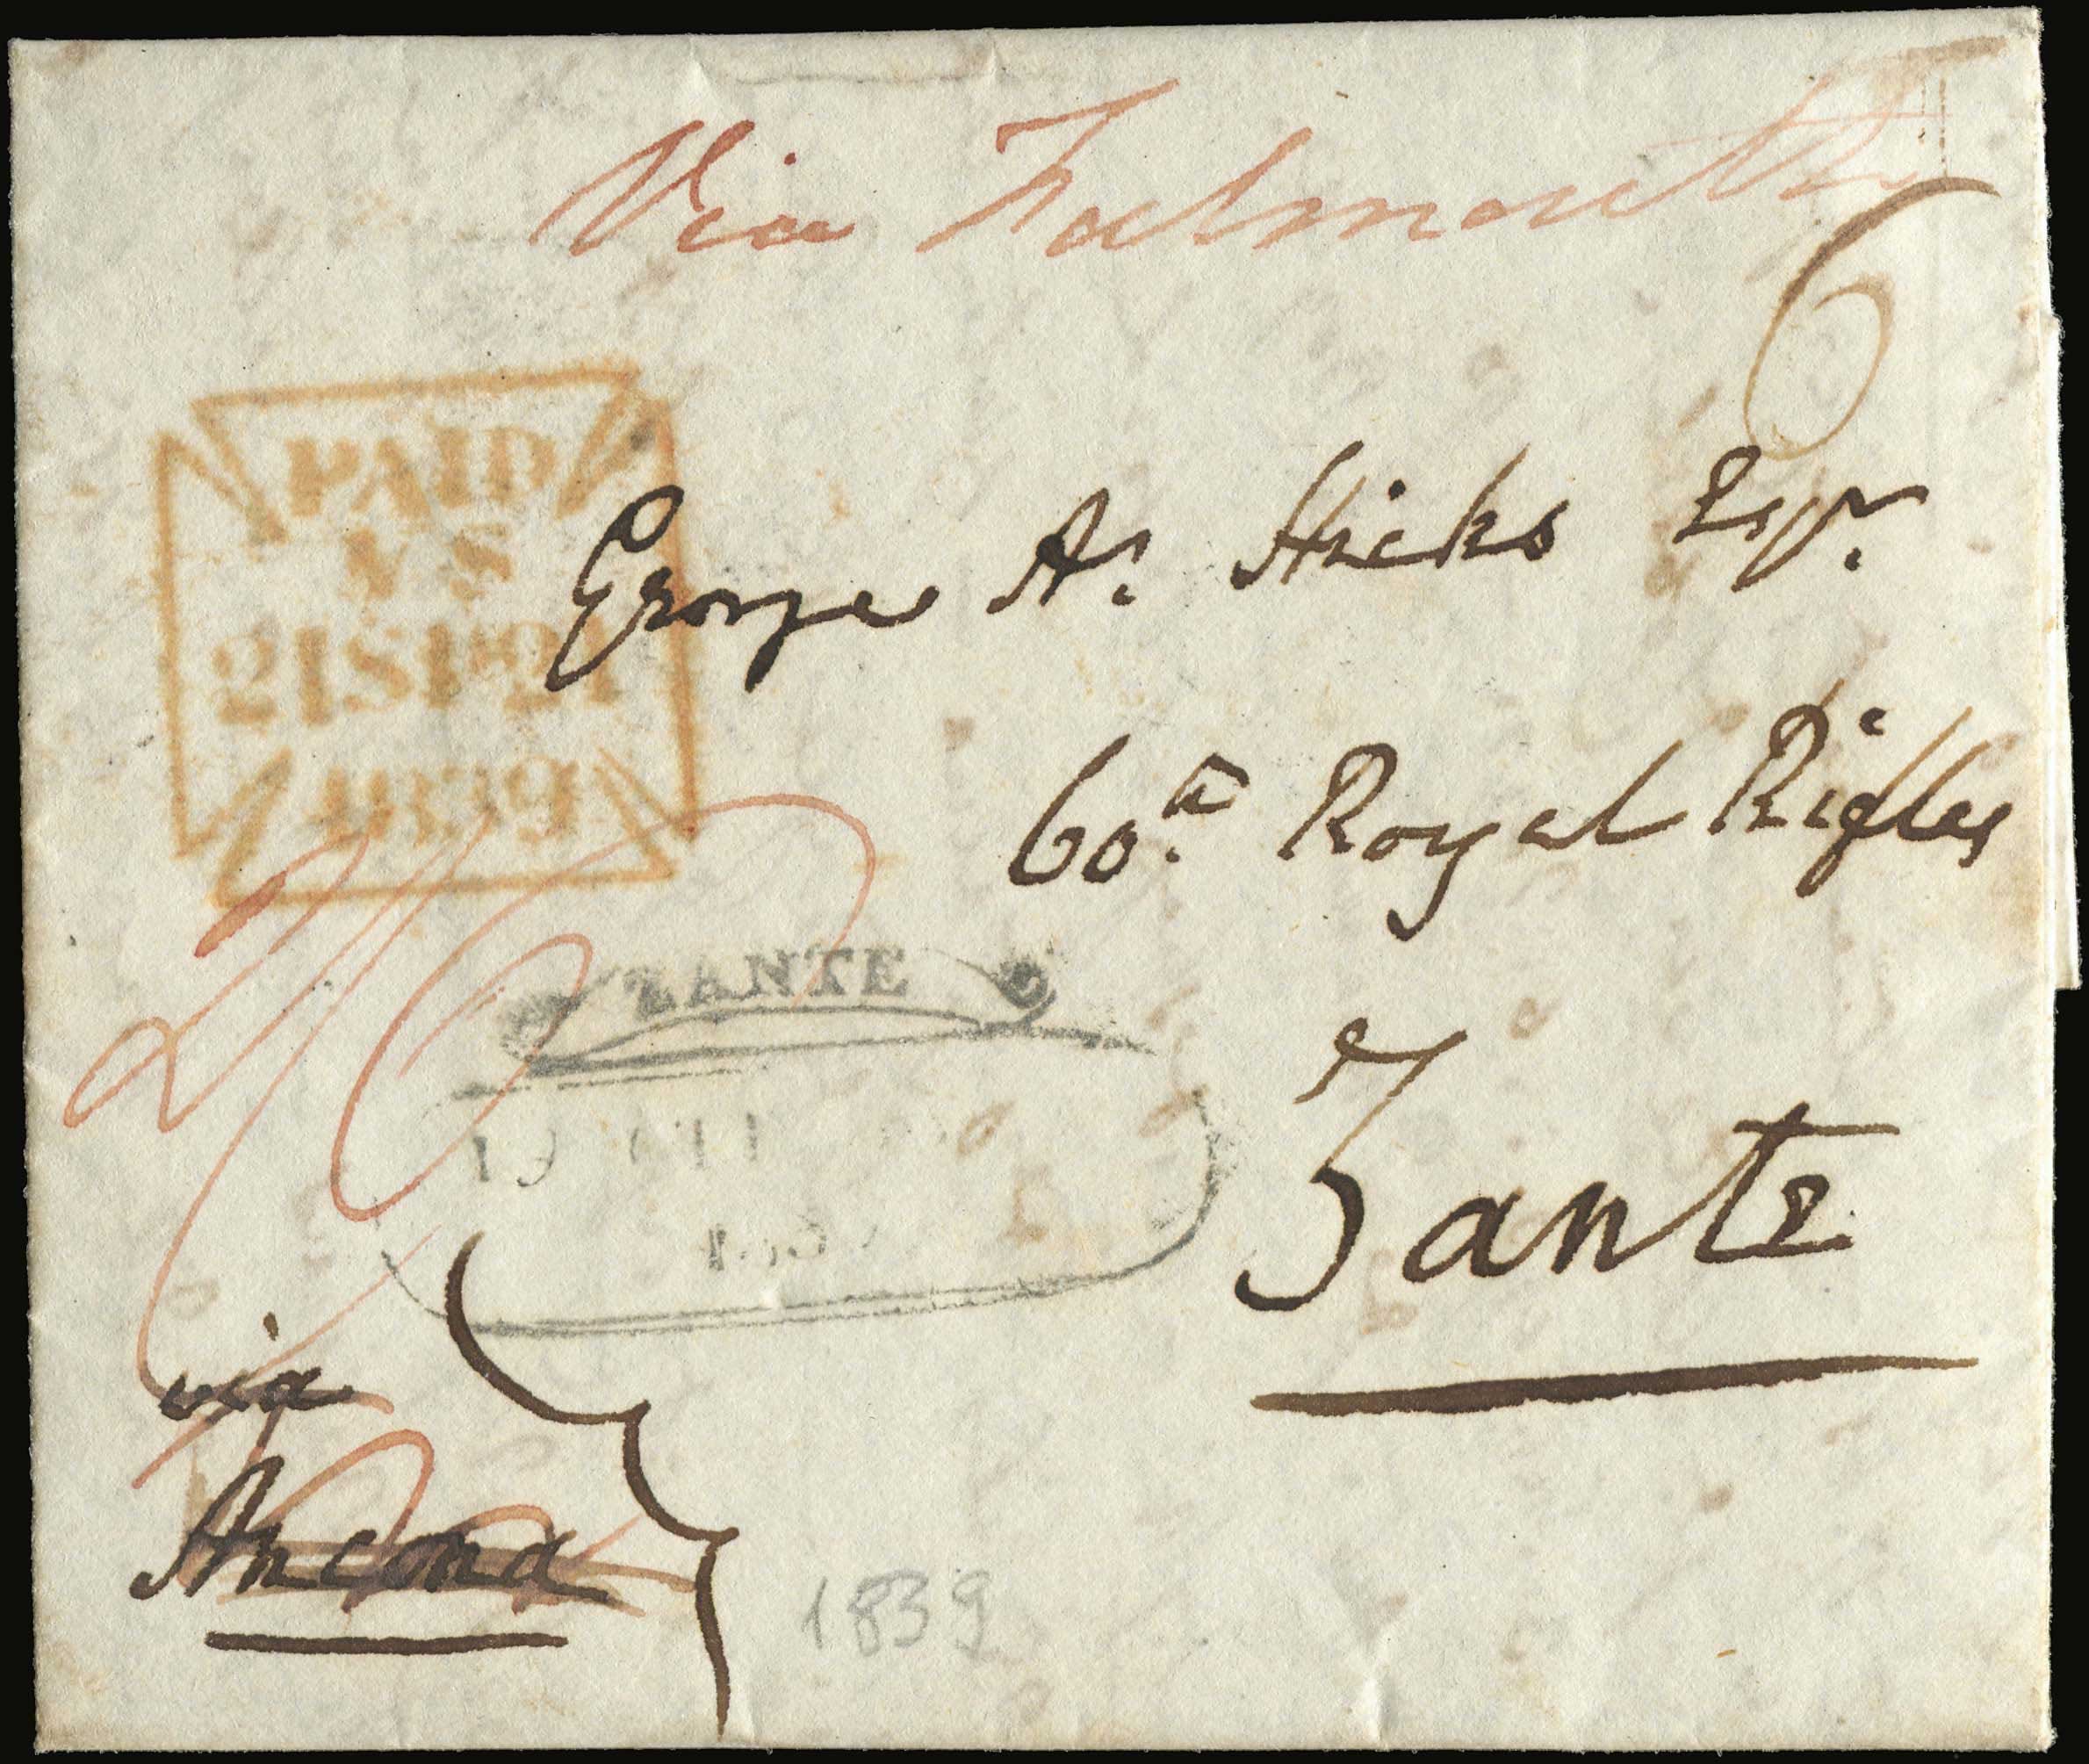 Via Falmouth
6
PAID
VS
21SP21
1839
George A. Hicks Esqr.
60th Royal Rifles
2/6
ZANTE
19
Zante
via
Ancona
1839